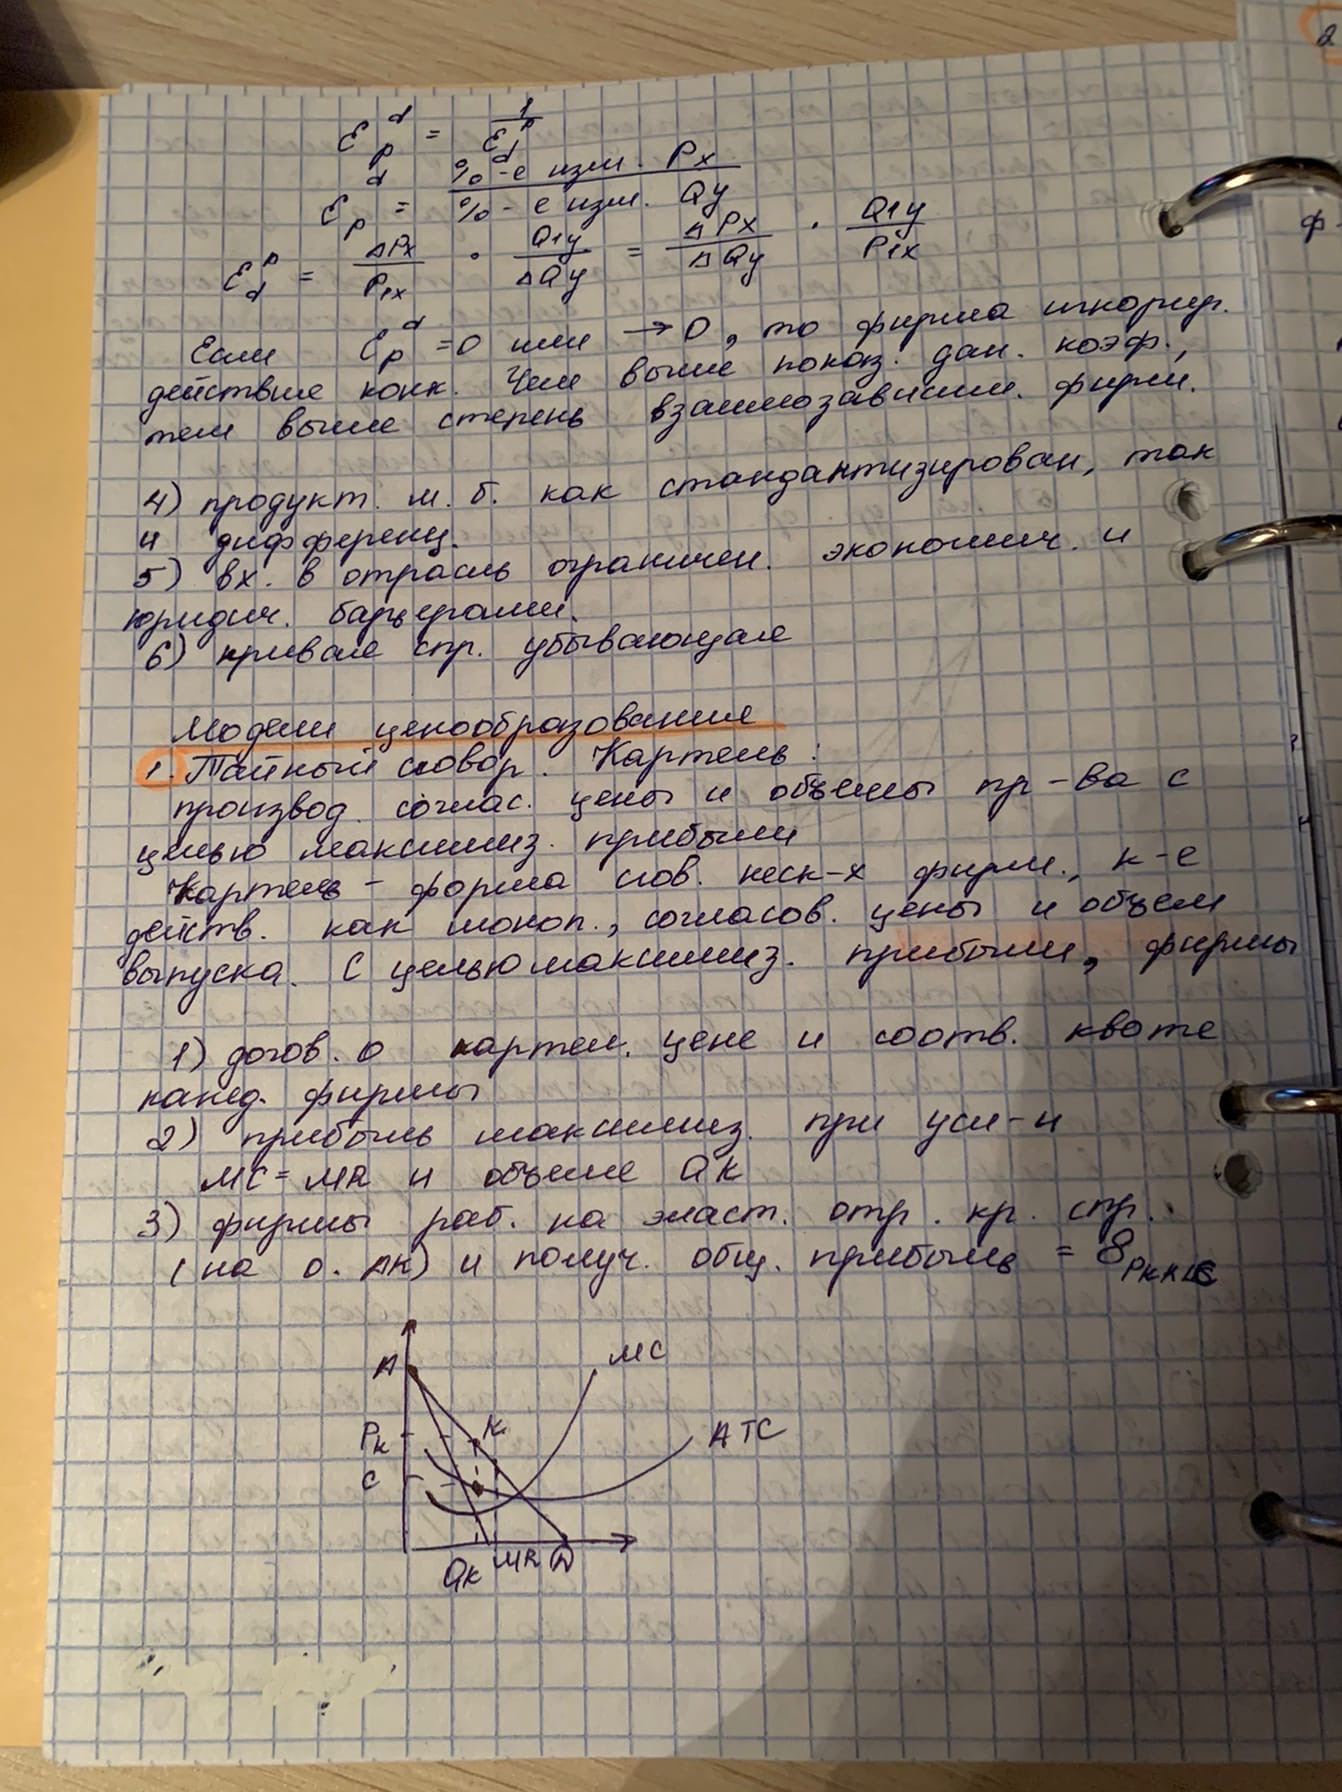 Ɛ_p^d = 1 / Ɛ_d^p
Ɛ_p^d = %-е изм. Px / %-е изм. Qy
Ɛ_d^p = ΔPx / P1x · Q1y / ΔQy = ΔPx / ΔQy · Q1y / P1x
Если Ɛ_p^d = 0 или → 0, то фирма игнорир.
действие конк. Чем выше показ. дан. коэф.,
тем выше степень взаимозависим. фирм.
4) продукт. м. б. как стандантизирован, так
и дифференц.
5) вх. в отрасль ограничен. экономич. и
юридич. барьерами.
6) кривая спр. убывающая
Модели ценообразования
1. Тайный сговор. Картель:
производ. соглас. цены и объемы пр-ва с
целью максимиз. прибыли
Картель - форма сгов. неск-х фирм., к-е
действ. как моноп., согласов. цены и объем
выпуска. С целью максимиз. прибыли, фирмы
1) догов. о картел. цене и соотв. квоте
кажд. фирмы
2) прибыль максимиз. при усл-и
MC = MR и объеме Qк
3) фирмы раб. на эласт. отр. кр. спр.
(на о. АК) и получ. общ. прибыль =
MC
A
Pк
K
ATC
C
Qк MR D